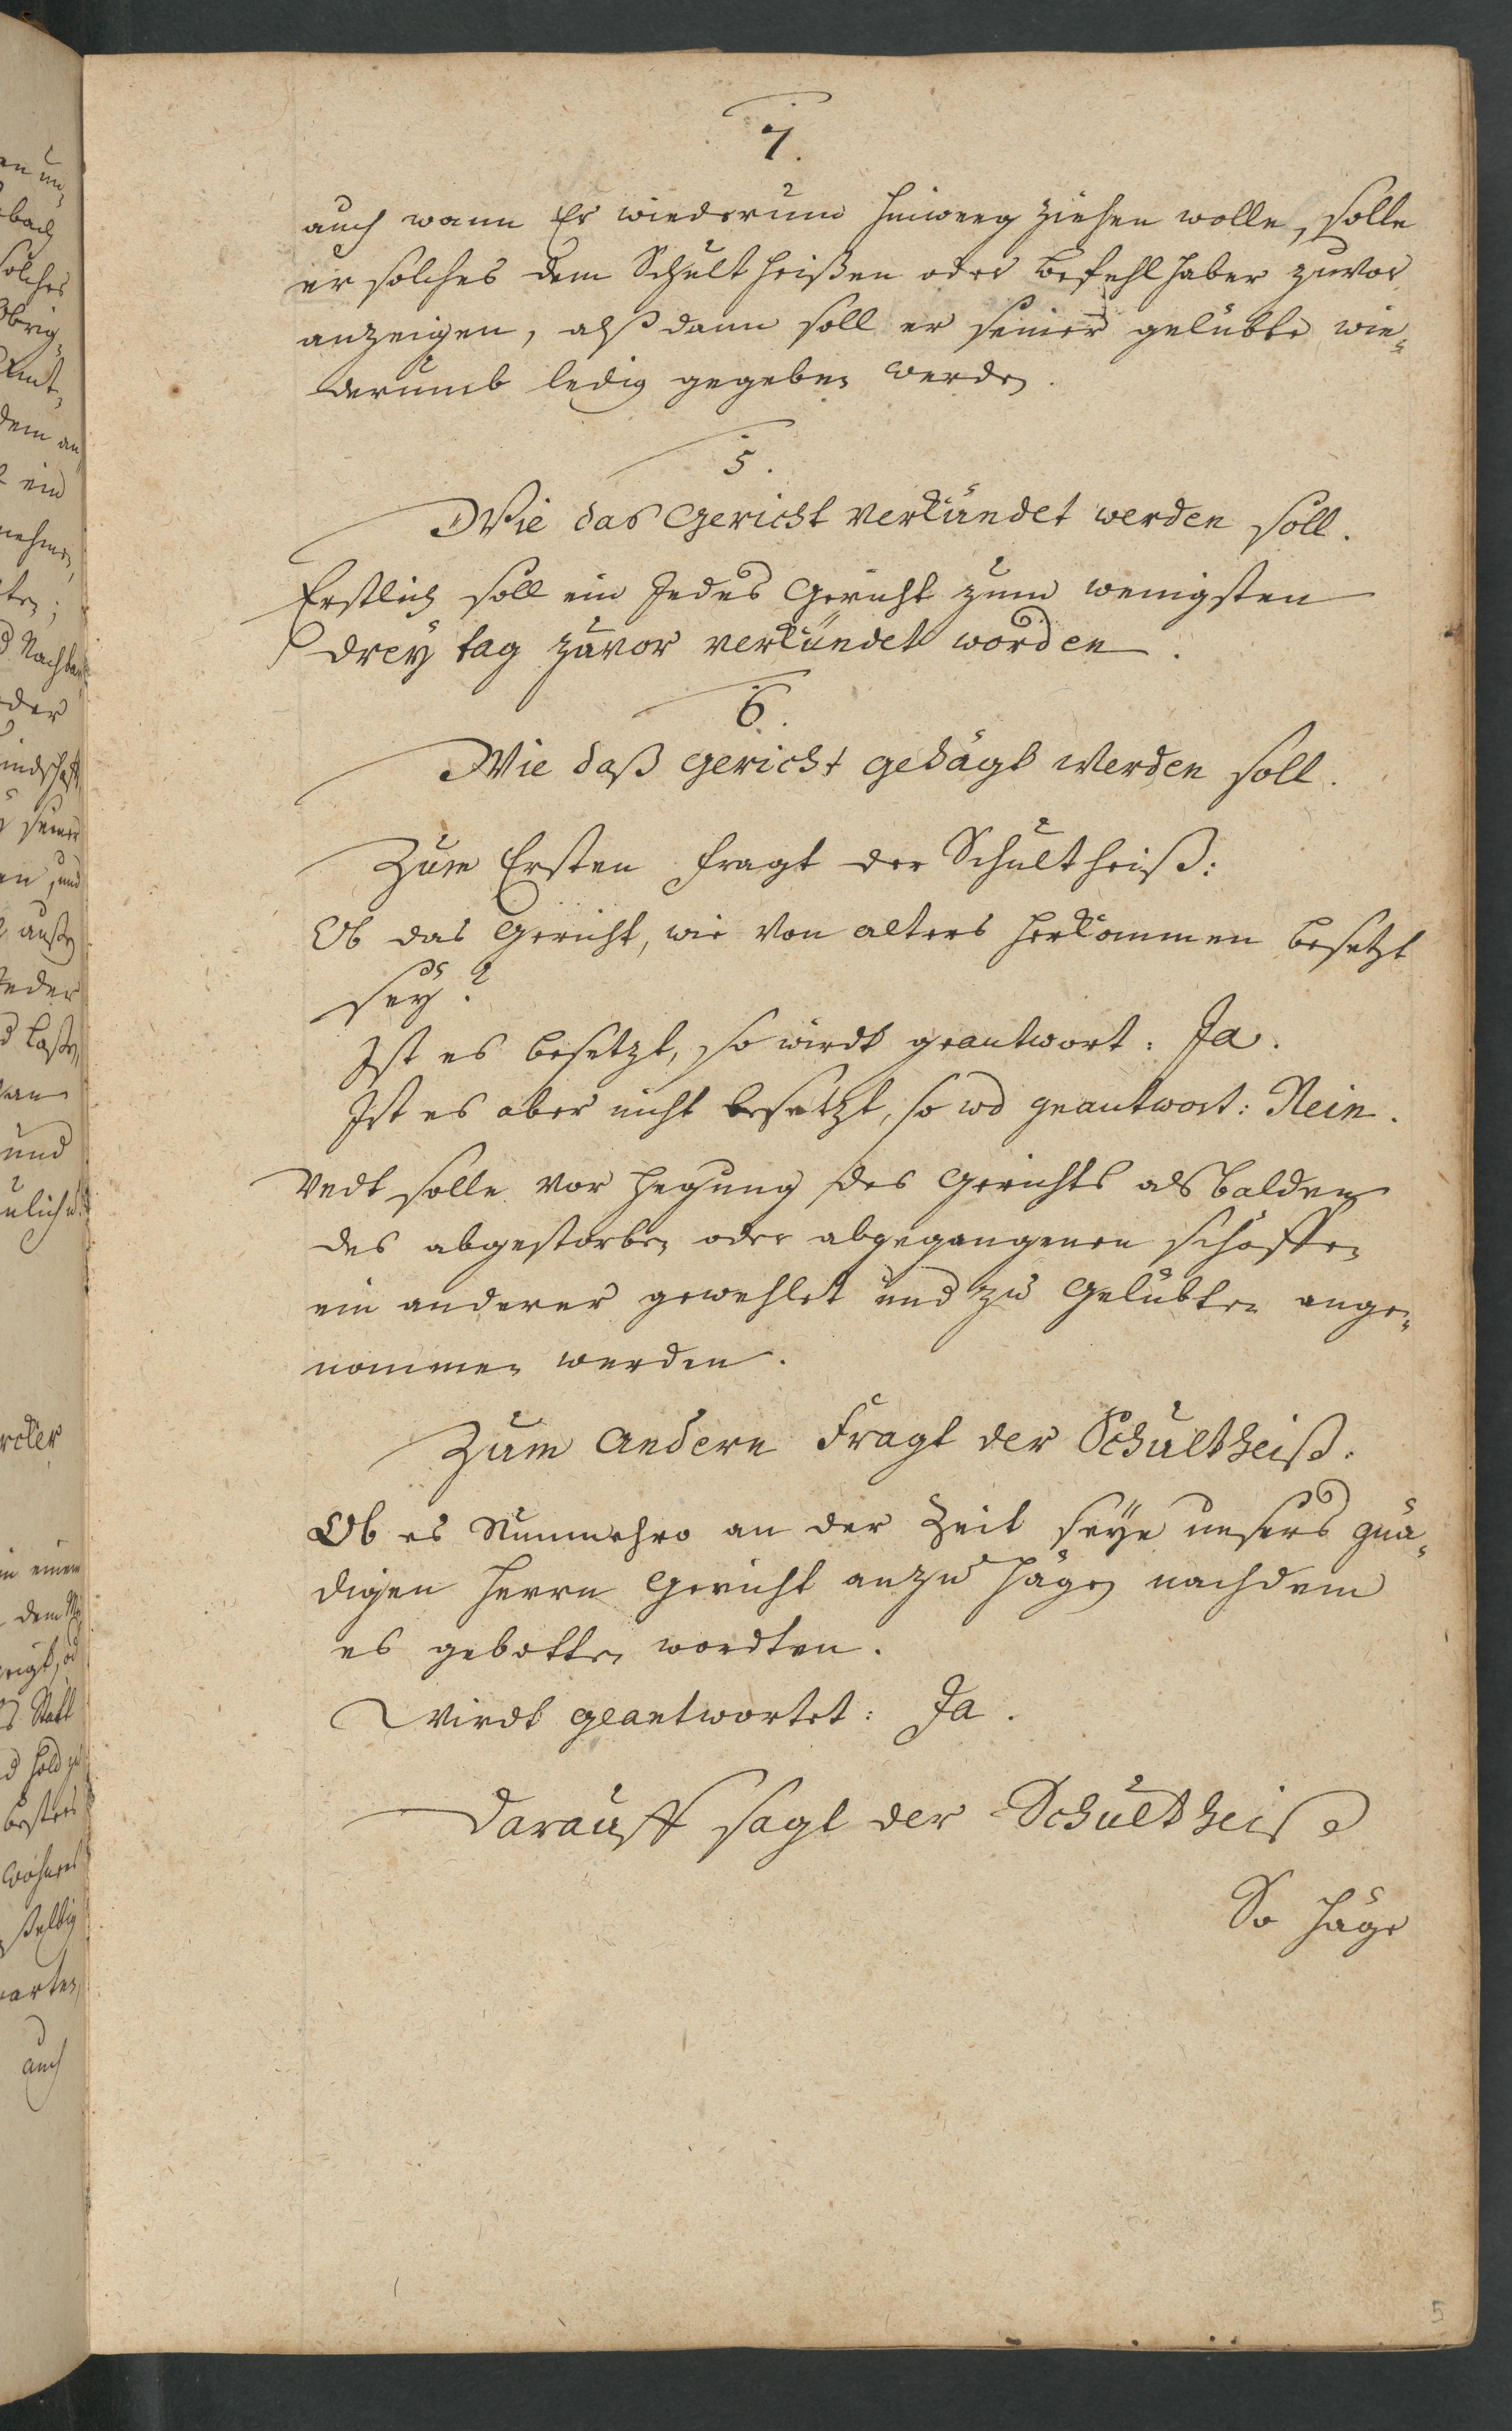 7.
auch wann Er wiederum hinweg ziehen wolle, solle
er solches dem Schultheißen oder Befehlhaber zuvor
anzeigen, alßdann soll er seiner gelübte wie„
derumb ledig gegeben werden.
5.
Wie das Gericht verkündet werden soll.
Erstlich soll ein Jedes Gericht zum wenigsten
drey tag zuvor verkündet worden.
6.
Wie daß Gericht gehägt Werden soll.
Zum Ersten fragt der Schultheiß:
Ob das Gericht, wie von alters herkommen besetzt
seÿ?
Ist es besetzt, so wirdt geantwort: Ja.
Ist es aber nicht besetzt, so wd geantwort: Nein.
Undt solle vor hegung des Gerichts alsbalden
des abgestorben oder abgegangenen schöffen
ein anderer gewehlet und zu Gelübten ange„
nommen werden.
Zum Andern Fragt der Schultheiß.
Ob es Nunmehro an der Zeit seÿe unsers gnä„
digen Herrn Gericht anzu hägen nachdem
es gebotten wordten.
Wirdt geantwortet: Ja.
Darauff sagt der Schultheiß
So häge
5